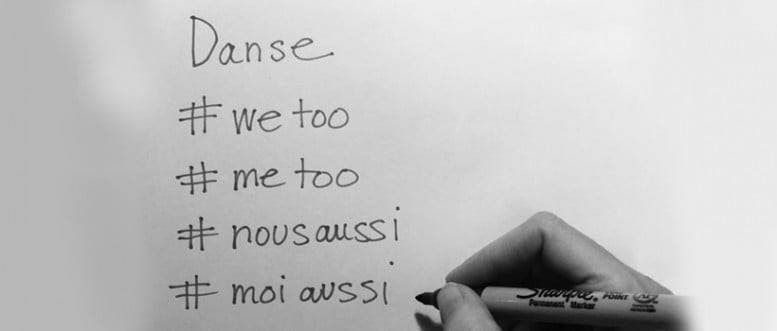 Danse
# we too
# me too
# nous aussi
# moi aussi
Sharpie
POINT
Permanent Marker